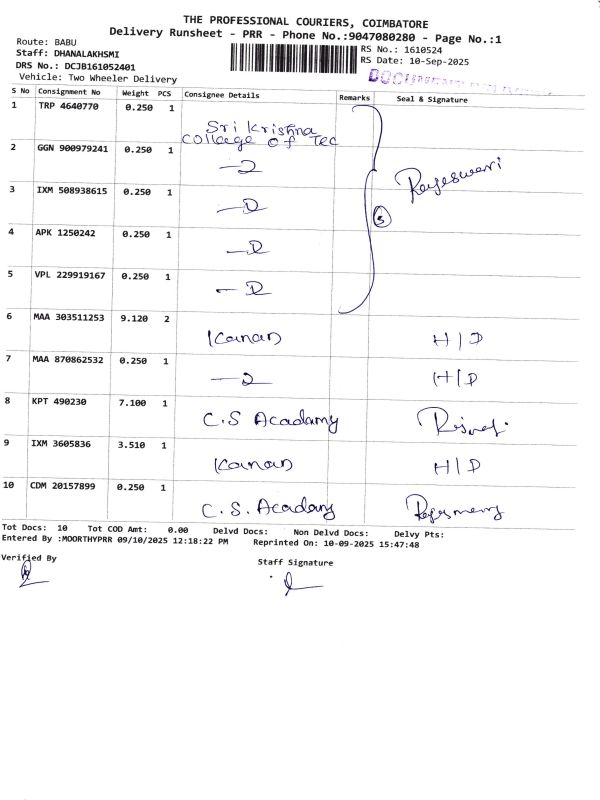 THE PROFESSIONAL COURIERS, COIMBATORE
Delivery Runsheet - PRR - Phone No.:9047080280 - Page No.:1
Route: BABU
RS No.: 1610524
Staff: DHANALAKHSMI
RS Date: 10-Sep-2025
DRS No.: DCJB161052401
Vehicle: Two Wheeler Delivery
S No Consignment No Weight PCS Consignee Details Remarks Seal & Signature
1 TRP 4640770 0.250 1 Sri Krishna
College of Tec
2 GGN 900979241 0.250 1
3 IXM 508938615 0.250 1
5
4 APK 1250242 0.250 1
5 VPL 229919167 0.250 1
6 MAA 303511253 9.120 2 Kanan H/D
7 MAA 870862532 0.250 1 H/D
8 KPT 490230 7.100 1 C.S Acadamy
9 IXM 3605836 3.510 1 Kanan H/D
10 CDM 20157899 0.250 1 C.S. Acadamy
Tot Docs: 10 Tot COD Amt: 0.00 Delvd Docs: Non Delvd Docs: Delvy Pts:
Entered By :MOORTHYPRR 09/10/2025 12:18:22 PM Reprinted On: 10-09-2025 15:47:48
Verified By
Staff Signature